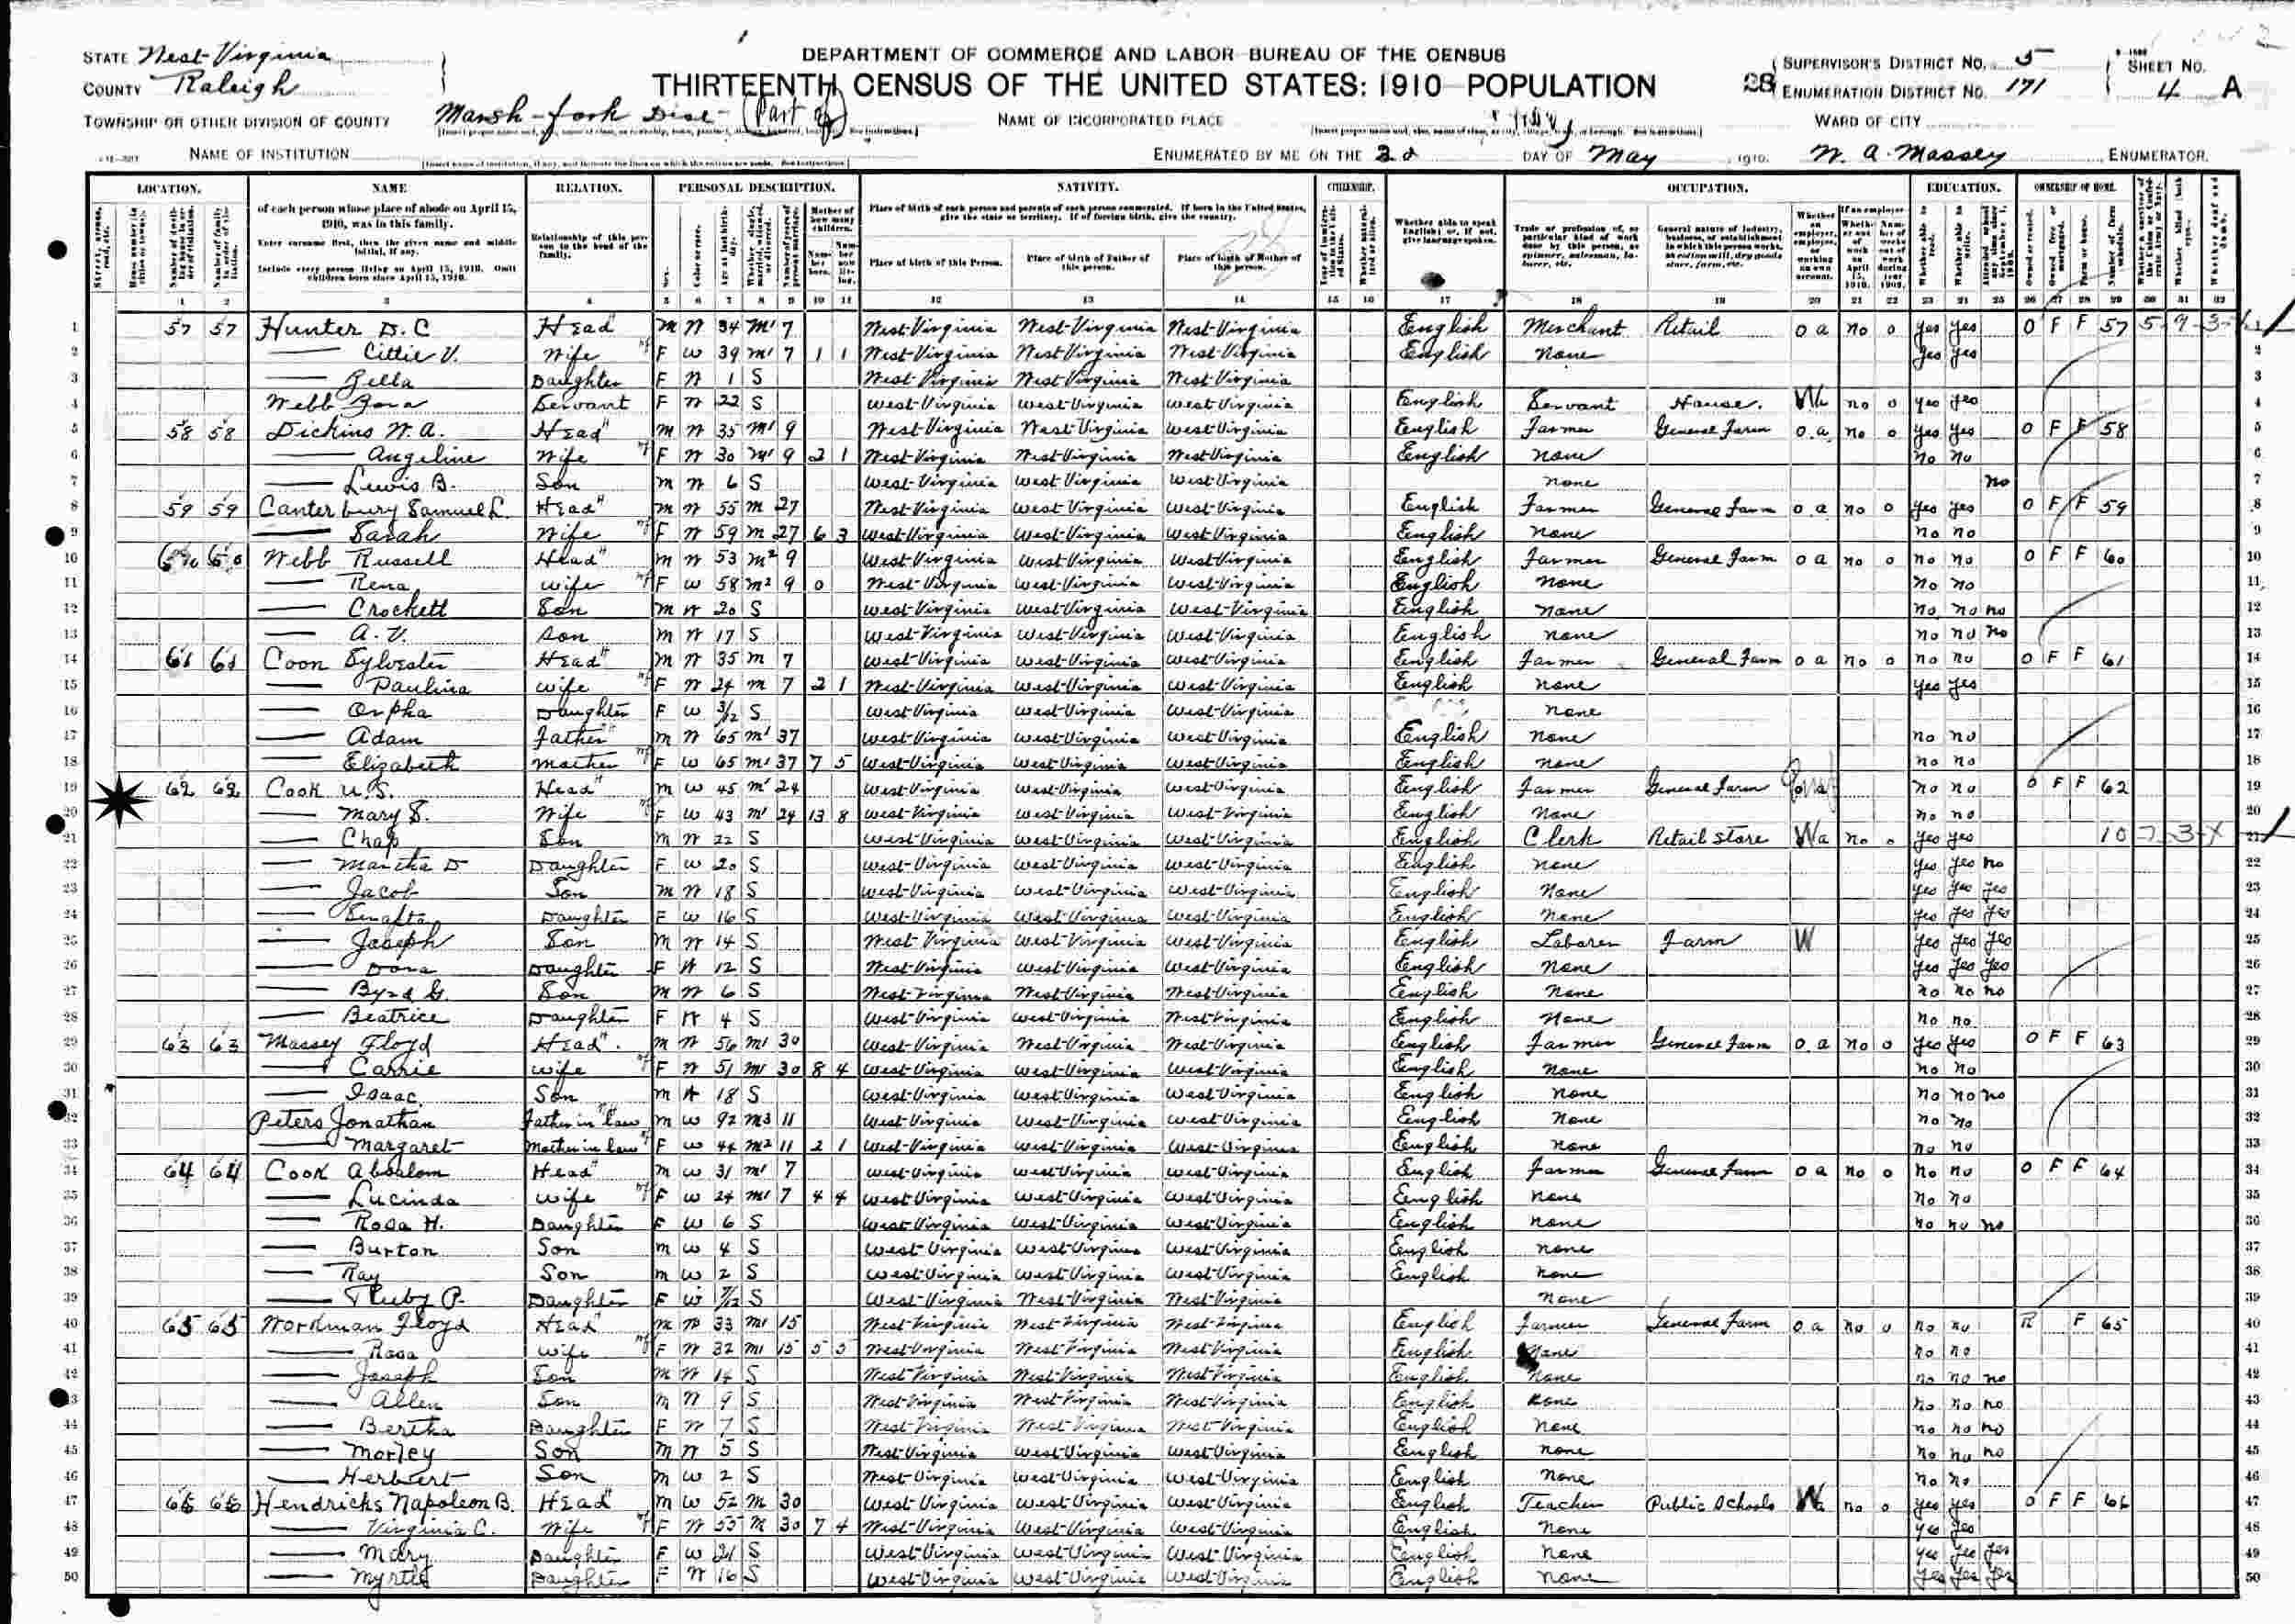 STATE West Virginia
COUNTY Raleigh
TOWNSHIP OR OTHER DIVISION OF COUNTY Marsh-fork Dist- (Part of)
NAME OF INSTITUTION
DEPARTMENT OF COMMERCE AND LABOR-BUREAU OF THE CENSUS
THIRTEENTH CENSUS OF THE UNITED STATES: 1910-POPULATION
NAME OF INCORPORATED PLACE
ENUMERATED BY ME ON THE 2d DAY OF May, 1910. W. A. Massey, ENUMERATOR.
SUPERVISOR'S DISTRICT No. 5
ENUMERATION DISTRICT No. 171
SHEET No. 4 A
WARD OF CITY
LOCATION. NAME RELATION. PERSONAL DESCRIPTION. NATIVITY. CITIZENSHIP. OCCUPATION. EDUCATION. OWNERSHIP OF HOME.
of each person whose place of abode on April 15, 1910, was in this family.
Enter surname first, then the given name and middle initial, if any.
Include every person living on April 15, 1910. Omit children born since April 15, 1910.
Relationship of this person to the head of the family.
Place of birth of each person and parents of each person enumerated. If born in the United States, give the state or territory. If of foreign birth, give the country.
Place of birth of this Person. Place of birth of Father of this person. Place of birth of Mother of this person.
Whether able to speak English; or, if not, give language spoken.
1 2 3 4 5 6 7 8 9 10 11 12 13 14 15 16 17 18 19 20 21 22 23 24 25 26 27 28 29 30 31 32
1 57 57 Hunter D. C Head M W 34 M1 7 West-Virginia West-Virginia West-Virginia English Merchant Retail o a no o yes yes O F F 57
2 Cittie V. Wife F W 39 M1 7 1 1 West-Virginia West-Virginia West-Virginia English None yes yes
3 Zella Daughter F W 1 S West-Virginia West-Virginia West-Virginia
4 Webb Servant F W 22 S West-Virginia West-Virginia West-Virginia English Servant House. W no o yes yes
5 58 58 Dickins W. A. Head M W 35 M1 9 West-Virginia West-Virginia West-Virginia English Farmer General Farm o a no o yes yes O F F 58
6 Angeline Wife F W 30 M1 9 2 1 West-Virginia West-Virginia West-Virginia English None no no
7 Lewis B. Son M W 6 S West-Virginia West-Virginia West-Virginia None no
8 59 59 Canterbury Samuel L. Head M W 55 M 27 West-Virginia West-Virginia West-Virginia English Farmer General Farm o a no o yes yes O F F 59
9 Sarah Wife F W 59 M 27 6 3 West-Virginia West-Virginia West-Virginia English None no no
10 60 60 Webb Russell Head M W 53 M2 9 West-Virginia West-Virginia West-Virginia English Farmer General Farm o a no o no no O F F 60
11 Rena Wife F W 58 M2 9 0 West-Virginia West-Virginia West-Virginia English None no no
12 Crockett Son M W 20 S West-Virginia West-Virginia West-Virginia English None no no no
13 A. V. Son M W 17 S West-Virginia West-Virginia West-Virginia English None no no no
14 61 61 Coon Sylvester Head M W 35 M 7 West-Virginia West-Virginia West-Virginia English Farmer General Farm o a no o no no O F F 61
15 Paulina Wife F W 24 M 7 2 1 West-Virginia West-Virginia West-Virginia English None yes yes
16 Orpha Daughter F W 3/12 S West-Virginia West-Virginia West-Virginia None
17 Adam Father M W 65 M1 37 West-Virginia West-Virginia West-Virginia English None no no
18 Elizabeth Mother F W 65 M1 37 7 5 West-Virginia West-Virginia West-Virginia English None no no
19 62 62 Cook U. S. Head M W 45 M1 24 West-Virginia West-Virginia West-Virginia English Farmer General Farm no no O F F 62
20 Mary S. Wife F W 43 M1 24 13 8 West-Virginia West-Virginia West-Virginia English None no no
21 Chap Son M W 22 S West-Virginia West-Virginia West-Virginia English Clerk Retail Store W no o yes yes
22 Martha D Daughter F W 20 S West-Virginia West-Virginia West-Virginia English None yes yes no
23 Jacob Son M W 18 S West-Virginia West-Virginia West-Virginia English None yes yes yes
24 Daughter F W 16 S West-Virginia West-Virginia West-Virginia English None yes yes yes
25 Joseph Son M W 14 S West-Virginia West-Virginia West-Virginia English Laborer Farm W yes yes yes
26 Dora Daughter F W 12 S West-Virginia West-Virginia West-Virginia English None yes yes yes
27 Byrd G. Son M W 6 S West-Virginia West-Virginia West-Virginia English None no no no
28 Beatrice Daughter F W 4 S West-Virginia West-Virginia West-Virginia English None no no
29 63 63 Massey Floyd Head M W 56 M1 30 West-Virginia West-Virginia West-Virginia English Farmer General Farm o a no o yes yes O F F 63
30 Carrie Wife F W 51 M1 30 8 4 West-Virginia West-Virginia West-Virginia English None no no
31 Isaac Son M W 18 S West-Virginia West-Virginia West-Virginia English None no no no
32 Peters Jonathan Father in law M W 92 M3 11 West-Virginia West-Virginia West-Virginia English None no no
33 Margaret Mother in law F W 44 M2 11 2 1 West-Virginia West-Virginia West-Virginia English None no no
34 64 64 Cook Absalom Head M W 31 M1 7 West-Virginia West-Virginia West-Virginia English Farmer General Farm o a no o no no O F F 64
35 Lucinda Wife F W 24 M1 7 4 4 West-Virginia West-Virginia West-Virginia English None no no
36 Rosa H. Daughter F W 6 S West-Virginia West-Virginia West-Virginia English None no no no
37 Burton Son M W 4 S West-Virginia West-Virginia West-Virginia English None
38 Ray Son M W 2 S West-Virginia West-Virginia West-Virginia English None
39 Ruby P. Daughter F W 7/12 S West-Virginia West-Virginia West-Virginia None
40 65 65 Workman Floyd Head M W 33 M1 15 West-Virginia West-Virginia West-Virginia English Farmer General Farm o a no o no no R F 65
41 Rosa Wife F W 32 M1 15 5 5 West-Virginia West-Virginia West-Virginia English None no no
42 Joseph Son M W 14 S West-Virginia West-Virginia West-Virginia English None no no no
43 Allen Son M W 9 S West-Virginia West-Virginia West-Virginia English None no no no
44 Bertha Daughter F W 7 S West-Virginia West-Virginia West-Virginia English None no no no
45 Morley Son M W 5 S West-Virginia West-Virginia West-Virginia English None no no no
46 Herbert Son M W 2 S West-Virginia West-Virginia West-Virginia English None no no
47 66 66 Hendricks Napoleon B. Head M W 52 M 30 West-Virginia West-Virginia West-Virginia English Teacher Public Schools W no o yes yes O F F 66
48 Virginia C. Wife F W 55 M 30 7 4 West-Virginia West-Virginia West-Virginia English None yes yes
49 Mary Daughter F W 21 S West-Virginia West-Virginia West-Virginia English None yes yes yes
50 Myrtle Daughter F W 16 S West-Virginia West-Virginia West-Virginia English None yes yes yes